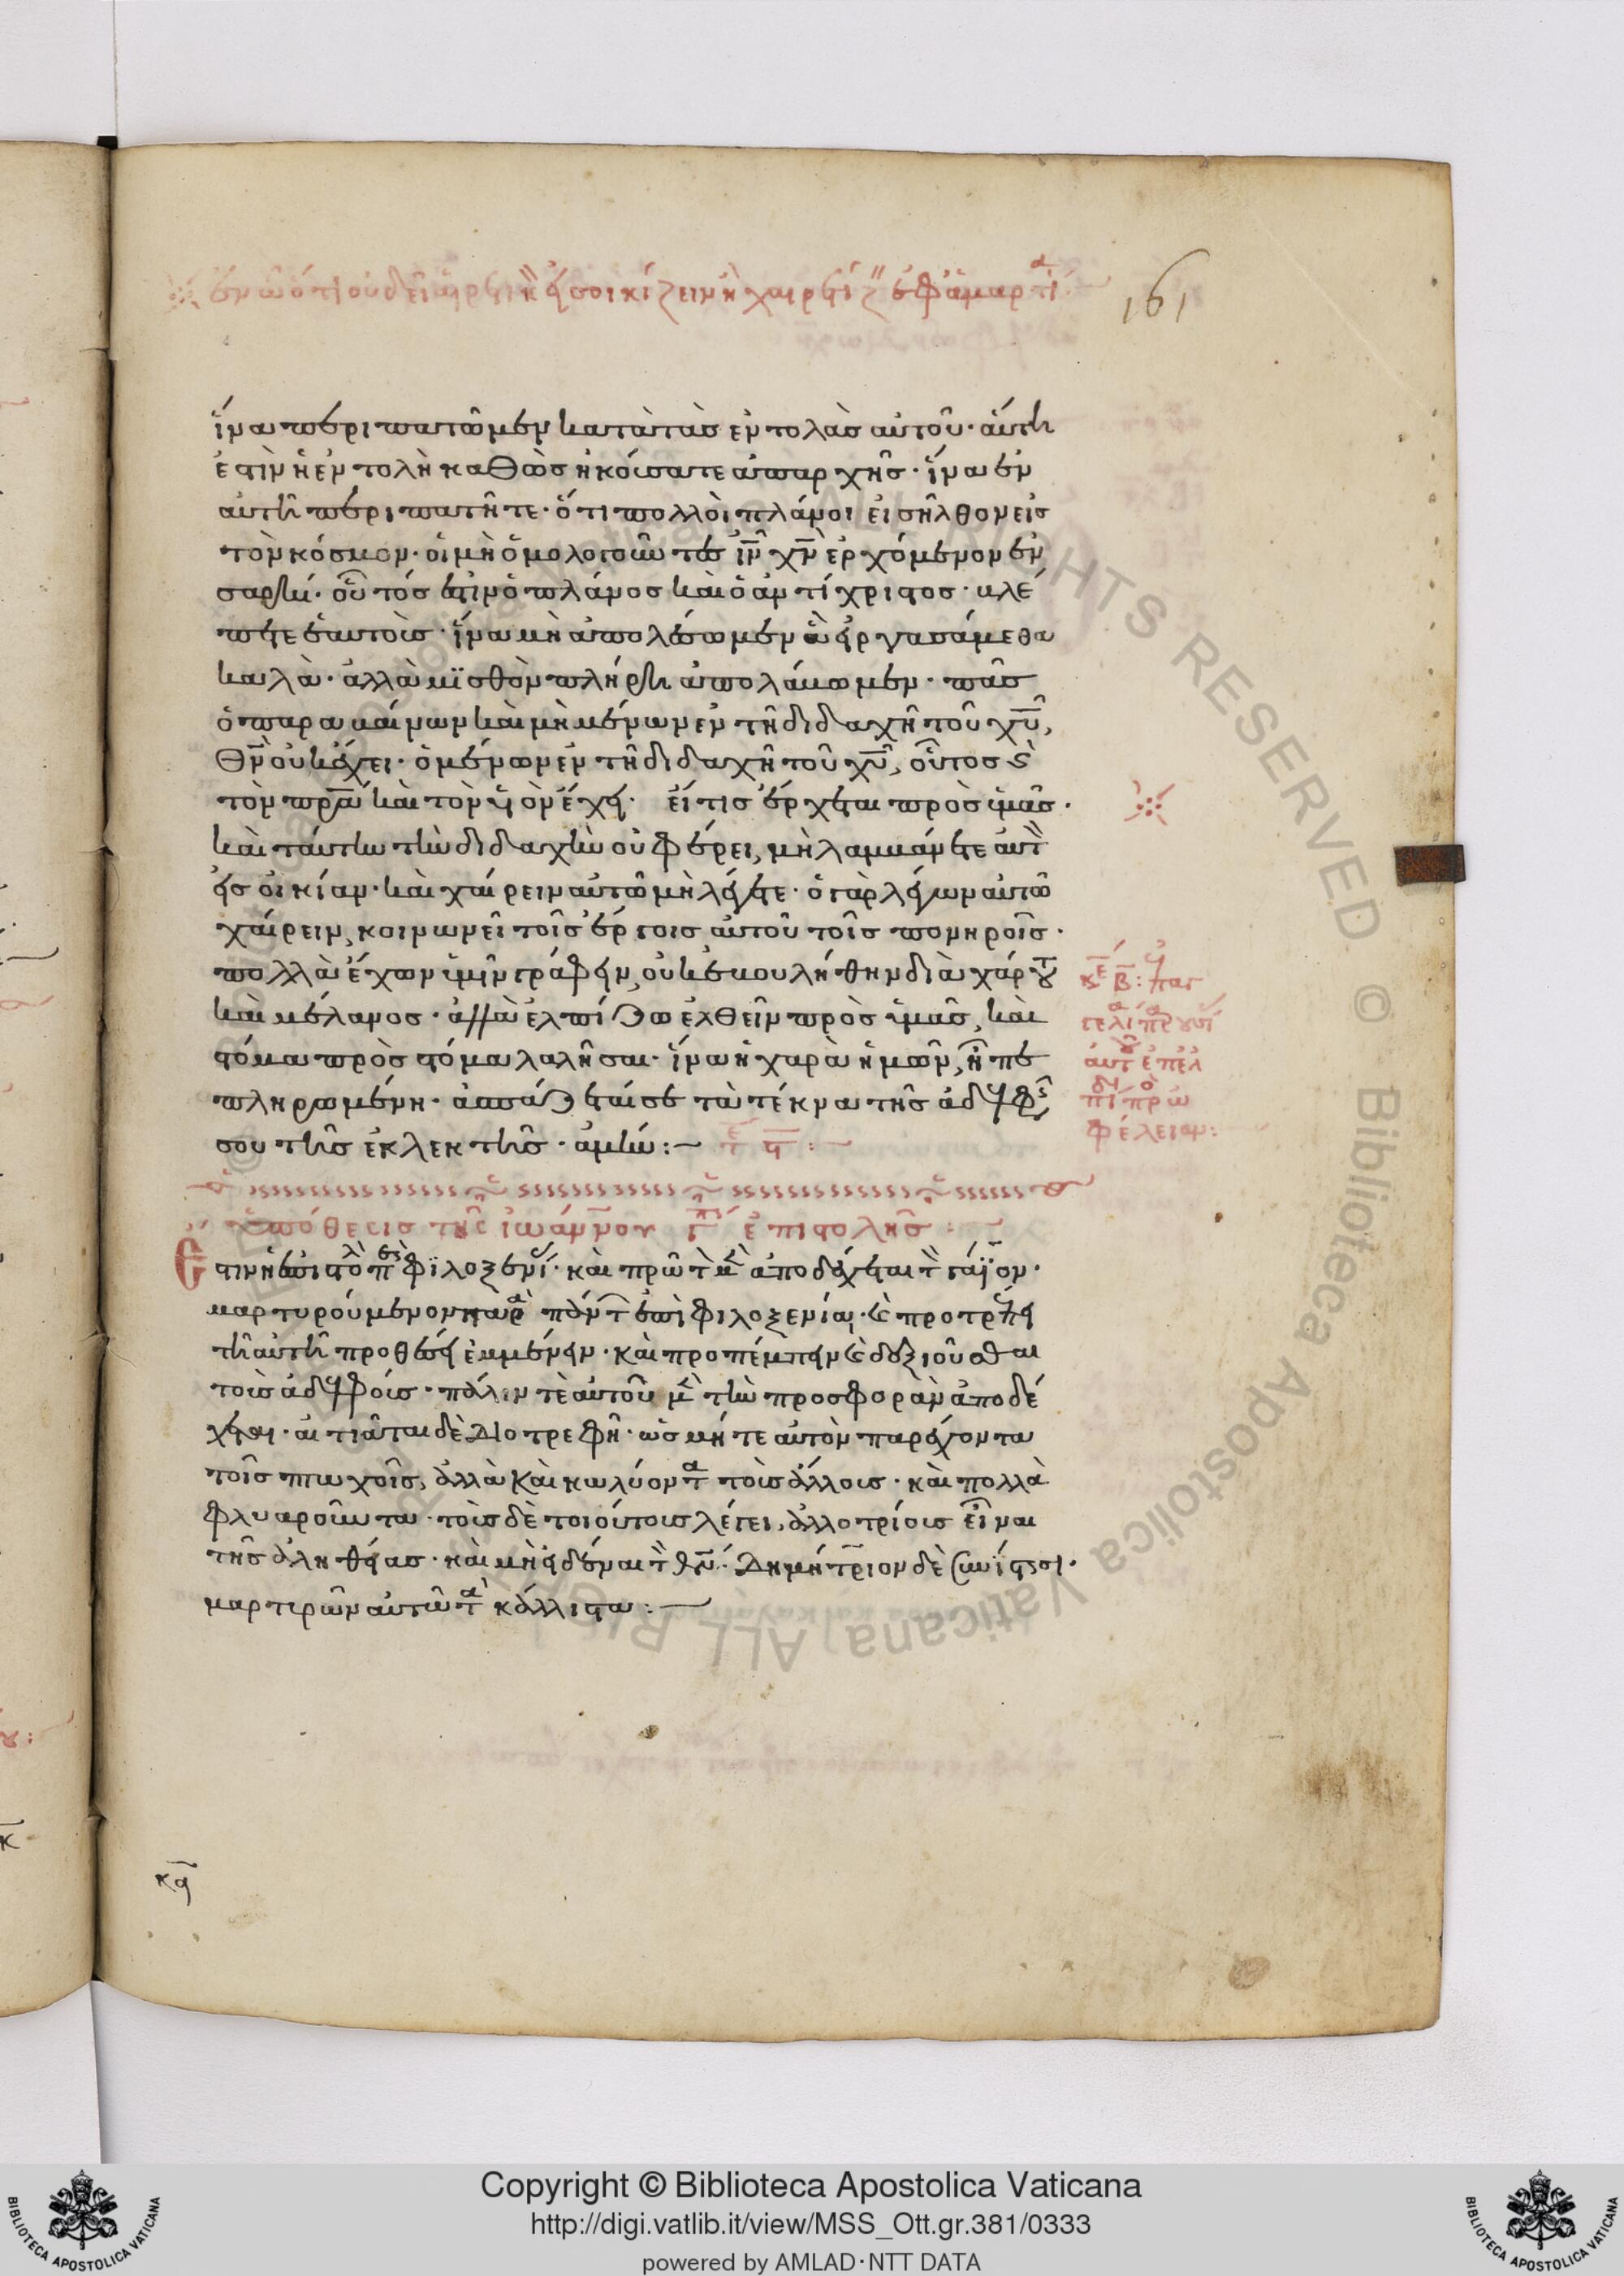 161
ἵνα περιπατῶμεν κατὰ τὰς ἐντολὰς αὐτοῦ· αὕτη
ἐστὶν ἡ ἐντολὴ καθὼς ἠκούσατε ἀπαρχῆς· ἵνα ἐν
αὐτῆ περιπατῆτε· ὅτι πολλοὶ πλάνοι εἰσῆλθον εἰς
τὸν κόσμον· οἱ μὴ ὁμολογοῦντες ἰν̅ χν̅ ἐρχόμενον ἐν
σαρκί· οὗτός ἐστιν ὁ πλάνος καὶ ὁ ἀντίχριστος· βλέ
πετε ἑαυτοὺς· ἵνα μὴ ἀπολέσωμεν ἃ εἰργασάμεθα
καλὰ· ἀλλὰ μϊσθὸν πλήρη ἀπολάβωμεν· πᾶς
ὁ παραβαίνων καὶ μὴ μένων ἐν τῆ διδαχῆ τοῦ χυ̅,
θν̅ οὐκ ἔχει· ὁ μένων ἐν τῆ διδαχῆ τοῦ χυ̅, οὗτος ϗ
τὸν πρα̅ καὶ τὸν υἱὸν ἔχει· εἴ τις ἔρχεται πρὸς ὑμᾶς·
καὶ ταύτην τὴν διδαχὴν οὐ φέρει, μὴ λαμβάνετε αὐτὸ
εἰς οἰκίαν· καὶ χαίρειν αὐτῶ μὴ λέγετε· ὁ γὰρ λέγων αὐτῶ
χαίρειν, κοινωνεῖ τοῖς ἔργοις αὐτοῦ τοῖς πονηροῖς·
πολλὰ ἔχων ὑμῖν γράφειν, οὐκ ἐβουλήθην διὰ χάρτου
καὶ μέλανος· ἀλλὰ ἐλπίζω ἐλθεῖν πρὸς ὑμᾶς, καὶ
στόμα πρὸς στόμα λαλῆσαι· ἵνα ἡ χαρὰ ἡμῶν, ἦ πε
πληρωμένη· ἀσπάζεταί σε τὰ τέκνα τῆς ἀδελφῆς
σου τῆς ἐκλεκτῆς· ἀμήν:
ὑπόθεσις τῆς ἰωάννου γ̅ ἐπιστολῆς:
Ἔ
στιν ἡ ἐπιστολὴ περὶ φϊλοξενί· καὶ πρῶτ μὲν ἀποδέχεται τ γάϊον·
μαρτυρούμενον παρὰ πάντ ἐπὶ φιλοξενία· ϗ προτρέπει
τῆ αὐτῆ προθέσει ἐμμένειν· καὶ προπέμπειν ϗ δεξιοῦσθαι
τοὺς ἀδελφούς· πάλιν τὲ αὐτοῦ μὲ τὴν προσφορὰν ἀποδέ
χεται· αἰτιᾶται δὲ Διοτρεφῆ· ὡς μήτε αὐτὸν παρέχοντα
τοῖς πτωχοῖς, ἀλλὰ καὶ κωλύοντα τοὺς ἄλλους· καὶ πολλὰ
φλυαροῦντα· τοὺς δὲ τοιούτους λέγει, ἀλλοτρίους εἶναι
τῆς ἀληθείας· καὶ μὴ εἰδέναι τ θν̅· Δημήτριον δὲ συνίστησι·
μαρτυρῶν αὐτῶ τὰ κάλλιστα:
κα̅
Copyright © Biblioteca Apostolica Vaticana
http://digi.vatlib.it/view/MSS_Ott.gr.381/0333
powered by AMLAD·NTT DATA